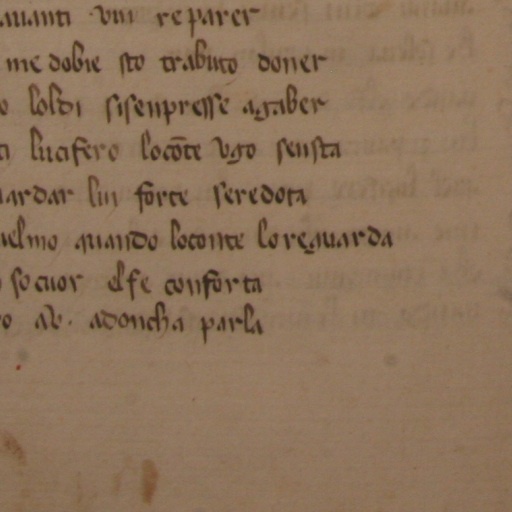 auanti vui reparer
me dobie sto trabuto doner
o loldi sisenpresse agaber
ti lucifero locōte vgo sensta
uardar lui forte seredota
ielmo quando loconte loreguarda
so cuor elfe conforta
ro ab. adoncha parla